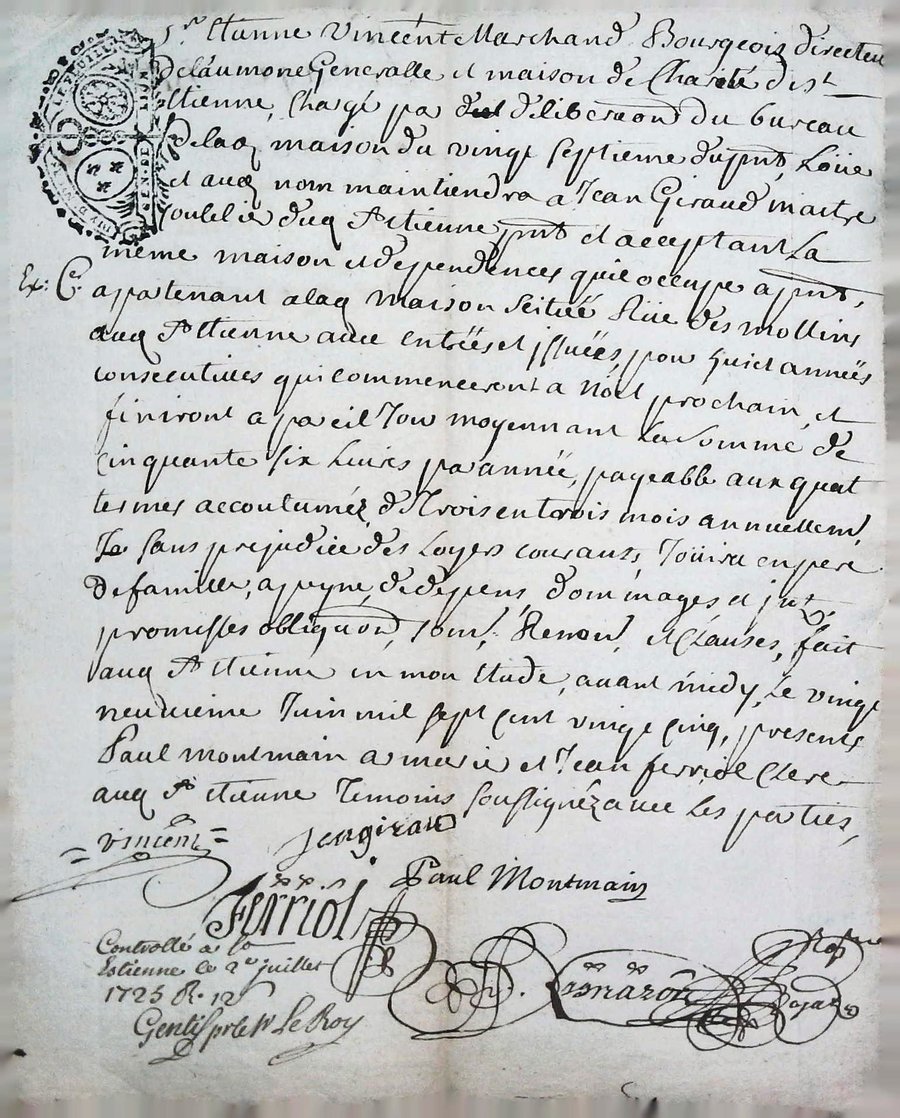 Sr. Etienne Vincent Marchand Bourgeois directeu
Delaumone Generalle et maison de Charité de st
Etienne, Chargé par deliberaon du bureau
delaq maison du vingt septieme dupnt, Loüe
et auq nom maintiendra a Jean Giraud maitre
duq St Etienne pnt et acceptant La
meme maison et dependences quil occupe apnt,
Ex: Ce.
apartenant alaq maison scituée Rüe des mollins
auq St Etienne avec entrëes et jssuëes pour huict annëes
consecutives qui commenceront a Nöel prochain et
finiront a pareil Jour moyennant La somme de
cinquante six Livres par année, payeable aux quat
termes accoutuméz de Trois en trois mois annuellemt,
sans prejudice des Loyers courants, Joüira en pere
de famille, a peyne de depens, dommages et jnts,
promesses obligaon, soum, Renon, et Clauses, fait
auq St Etienne en mon Etude, avant midy, Le vingt
neuvieme Juin mil sept cent vingt cinq, presents
Paul Montmain et Jean ferriol Clerc
auq St Etienne Temoins soussignéz avec Les parties,
Vincent
Jean giraud
Paul Montmain
Ferriol
Controllé a St
Estienne le 2e juillet
1725 R. 12s
Gentis pr le Sr Le Roy